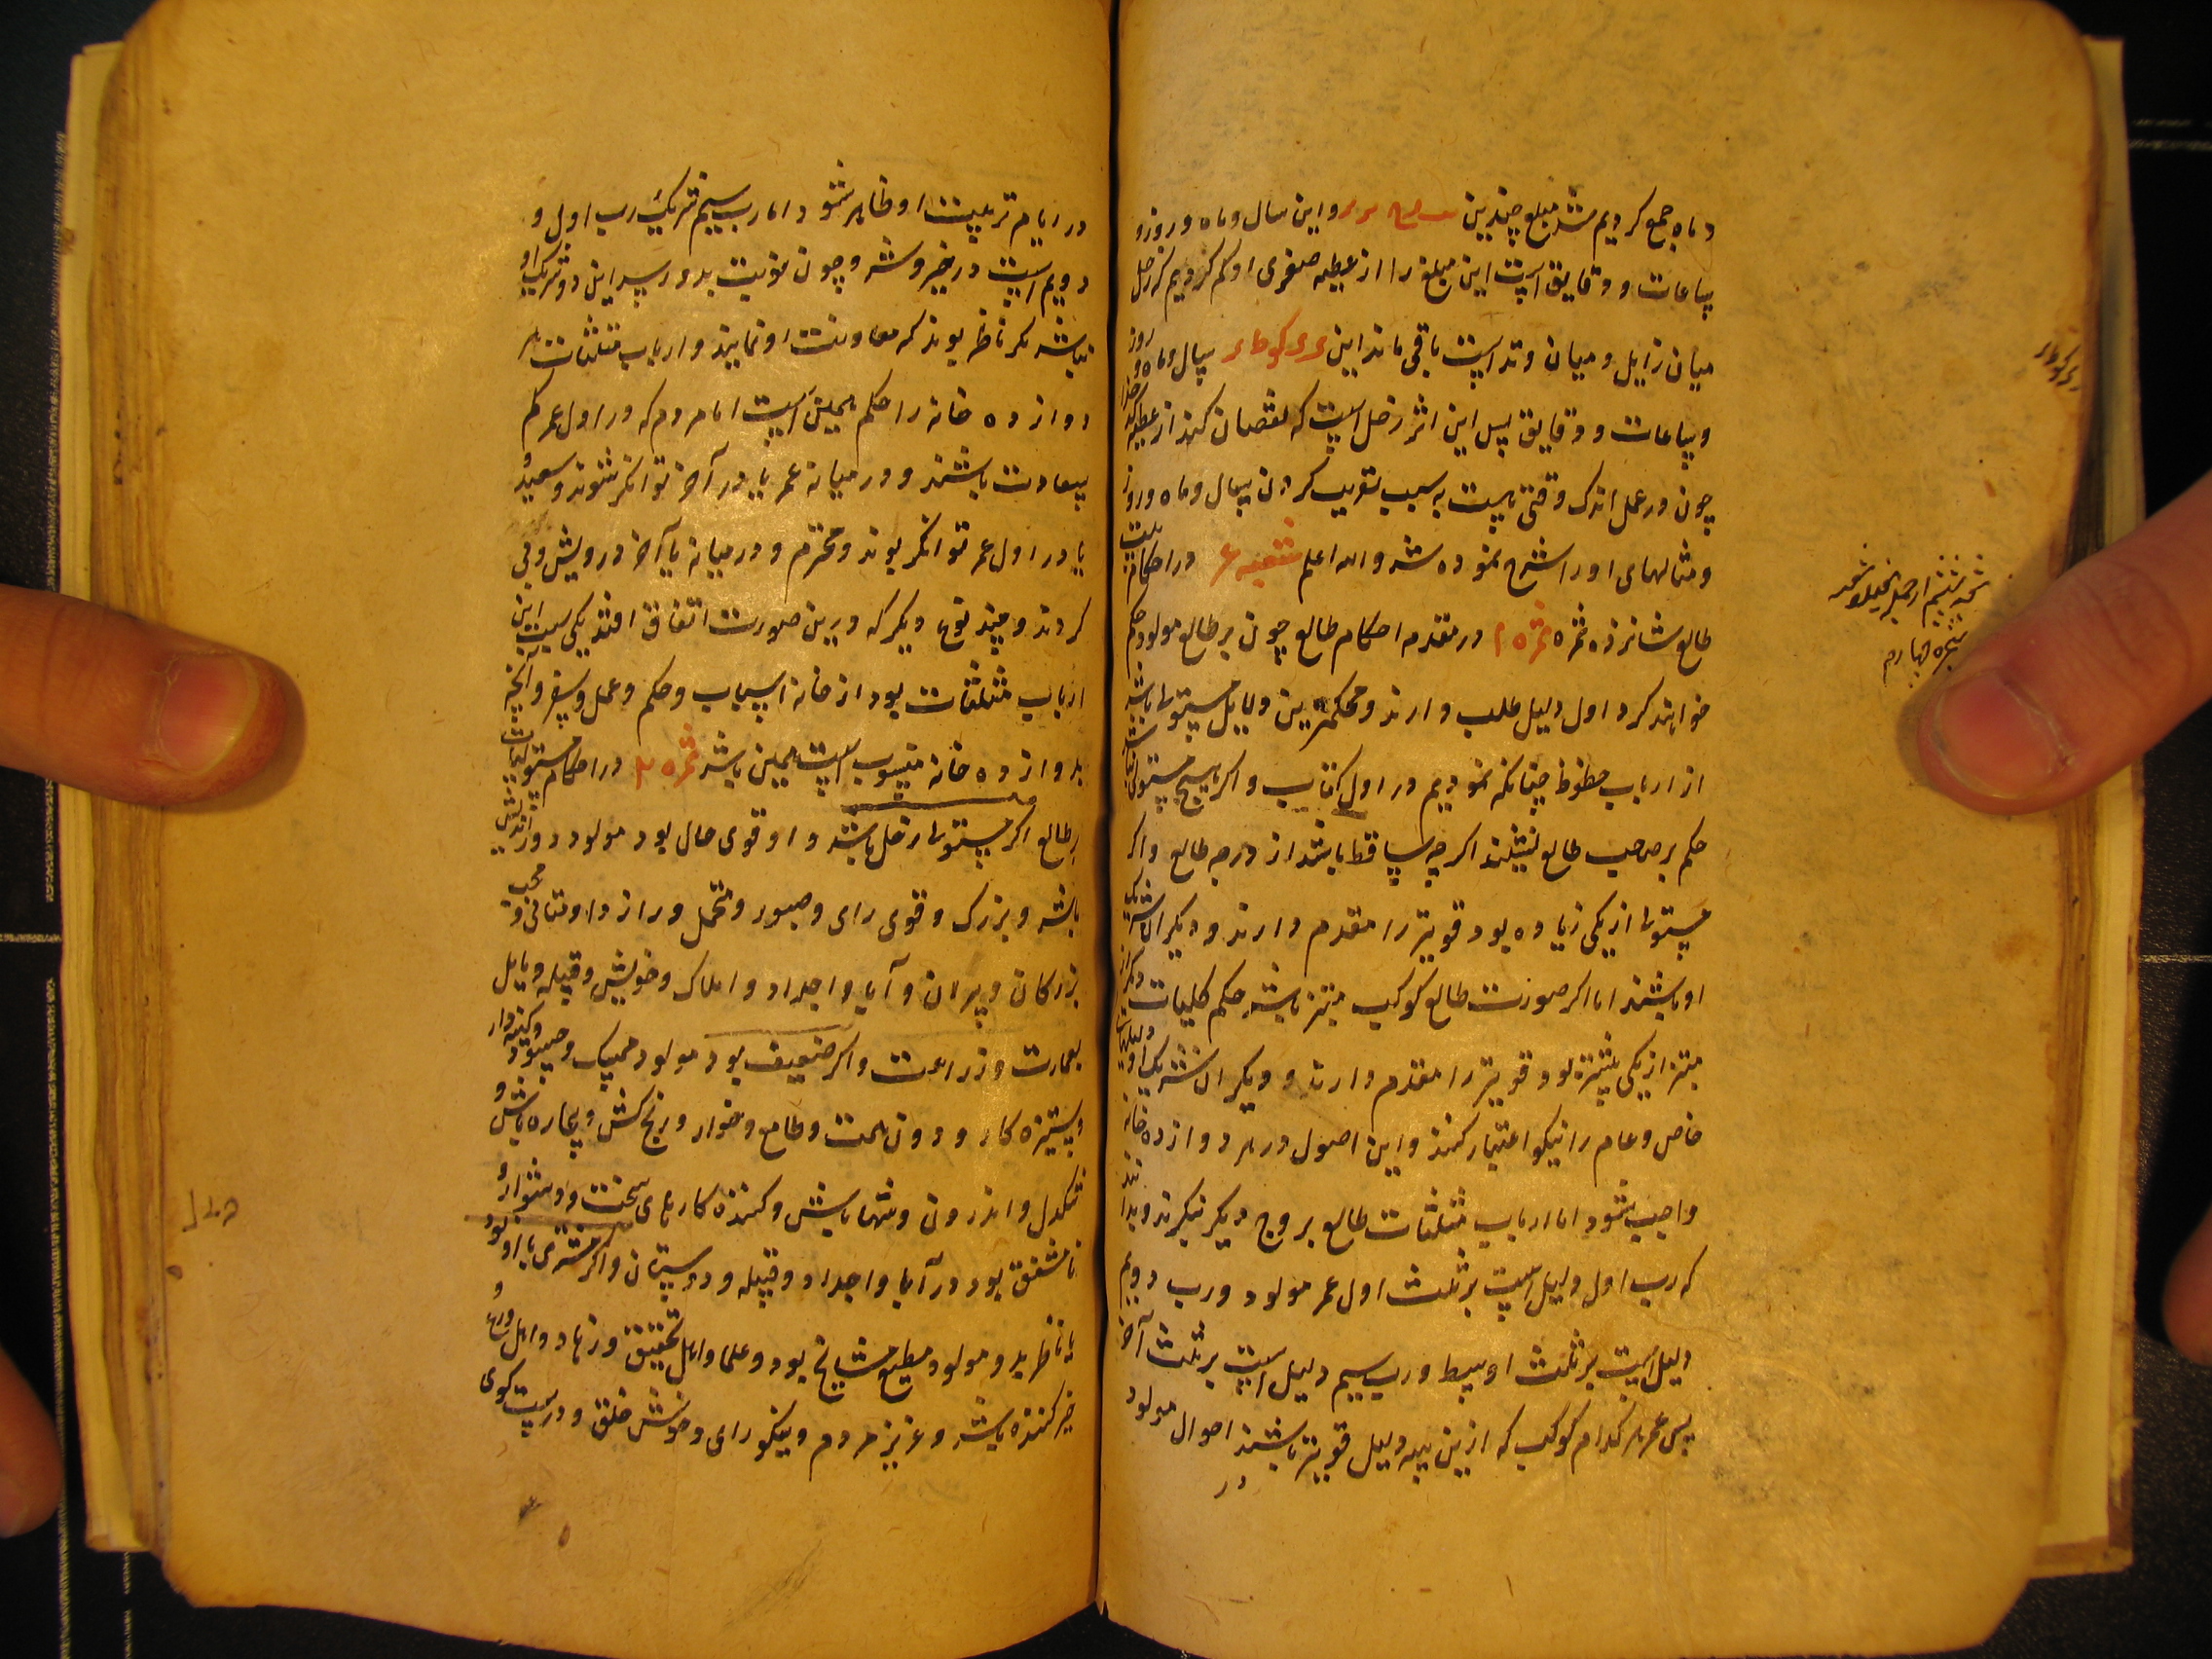 و ماه جمع کردیم شد مبلغ چندین و این سال و ماه و روز و
ساعات و دقایق است این مبلغ را از عطیه صغری او کم کردیم که زحل
میان زایل و میان وتد است باقی ماند این سال و ماه و روز
و ساعات و دقایق پس این اثر زحل است که نقصان کند از عطیه
چون در عمل اندک وقتی هست به سبب تقریب کردن سال و ماه و روز
و مثالهای او را شرح نموده شد والله اعلم شعبه در احکام
طالع شانزده ثمره ثمره ۱ در مقدمه احکام طالع چون بر طالع مولود حکم
خواهند کرد اول دلیل طلب دارند و محکمترین دلایل مستولی باشد
از ارباب حظوظ چنانکه نمودیم در اول کتاب و اگر هیچ مستولی
حکم بر صاحب طالع کنند اگر چه ساقط باشد از درجه طالع و اگر
مستولی از یکی زیاده بود قویتر را مقدم دارند و دیگران شریک
او باشند اما اگر صورت طالع کوکب مبتز باشد حکم کلیات
مبتز از یکی بیشتر بود قویتر را مقدم دارند و دیگران شریک او
خاص و عام را نیکو اعتبار کنند و این اصول در هر دوازده خانه
واجب شود اما ارباب مثلثات طالع بروج دیگر نیکرند و بدانند
که رب اول دلیل است بر ثلث اول عمر مولود و رب دویم
دلیل است بر ثلث اوسط و رب سیم دلیل است بر ثلث آخر
پس عمر هر کدام کوکب که ازین سه دلیل قویتر باشند احوال مولود
در
شجره چهارم
در ایام تربیت او ظاهر شود اما رب سیم شریک رب اول و
دویم است در خیر و شر و چون نوبت بدو رسد این دو شریک او
نباشد مکر ناظر بوند که معاونت او نمایند و ارباب مثلثات هر
دوازده خانه را حکم همین است اما مردم که در اول عمر کم
سعادت باشند و در میانه عمر یا در آخر توانکر شوند و سعید
یا در اول عمر توانکر بوند و محترم و در میانه یا آخر درویش و بی
کردند و چند نوع دیگر که درین صورت اتفاق افتد یکی سبب این
ارباب مثلثات بود از خانه اسباب و حکم و عمل و سفر و آنچه
بدوازده خانه منسوب است همین باشد ثمره ۲ در احکام مستولیات
بر طالع اگر مستولی زحل باشد و او قوی حال بود مولود دور اندیش
باشد و بزرک و قوی رای و صبور و متحمل و رازدار و متانی و محب
بزرکان و پیران و آبا و اجداد و املاک و خویش و قبیله و مایل
بعمارت و زراعت و اگر ضعیف بود مولود ممسک و حسود و کینه دار
و ستیزه کار و دون همت و طامع و خوار و رنج کش و بیچاره باشد و
تنکدل و اندرون و تنها باش و کننده کارهای سخت و دشوار و
نامشفق بود در آبا و اجداد و قبیله و دوستان و اگر مشتری با او بود
یا ناظر بدو مولود مطیع مشایخ بود و علما و اهل تحقیق و زهاد و اهل ورع و
خیر کننده باشد و عزیز مردم و نیکو رای و خوش خلق و درست کوی